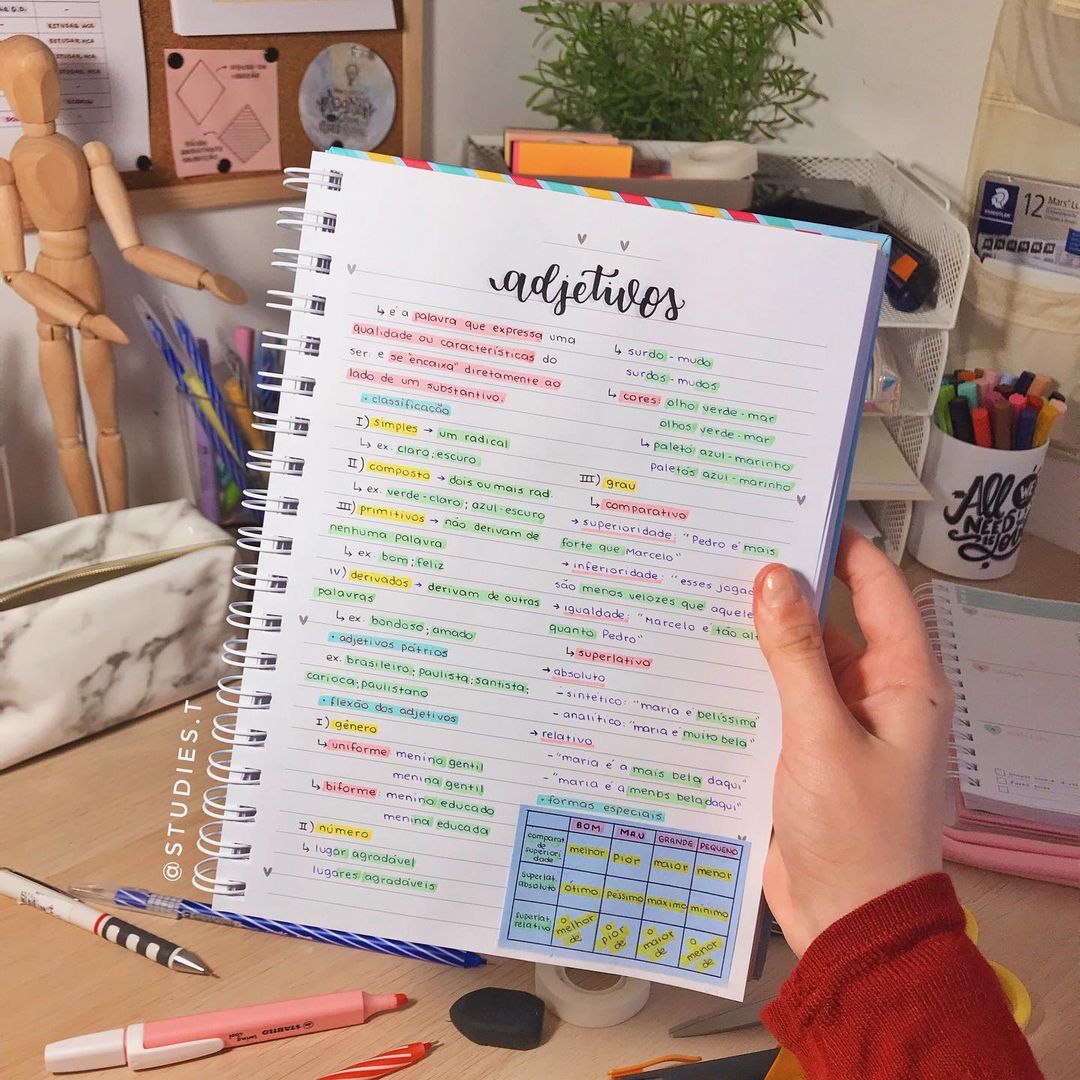 ESTUDAR MCA
ESTUDAR MCA
STAEDTLER
12 Mars® Lu
adjetivos
↳ é a palavra que expressa uma
qualidade ou características do
ser e se "encaixa" diretamente ao
lado de um substantivo.
• classificação
I) simples → um radical
↳ ex. claro; escuro
II) composto → dois ou mais rad.
↳ ex. verde-claro; azul-escuro
III) primitivos → não derivam de
nenhuma palavra
↳ ex. bom; feliz
IV) derivados → derivam de outras
palavras
↳ ex. bondoso; amado
• adjetivos pátrios
ex. brasileiro; paulista; santista;
carioca; paulistano
• flexão dos adjetivos
I) gênero
↳ uniforme: menino gentil
menina gentil
↳ biforme: menino educado
menina educada
II) número
↳ lugar agradável
lugares agradáveis
↳ surdo-mudo
surdos-mudos
↳ cores: olho verde-mar
olhos verde-mar
↳ paletó azul-marinho
paletós azul-marinho
III) grau
↳ comparativo
→ superioridade: "Pedro é mais
forte que Marcelo"
→ inferioridade: "esses jogad
são menos velozes que aquele
→ igualdade: "Marcelo é tão alt
quanto Pedro"
↳ superlativo
→ absoluto
- sintético: "maria é belíssima"
- analítico: "maria é muito bela"
→ relativo
- "maria é a mais bela daqui"
- "maria é a menos bela daqui"
• formas especiais
BOM MAU GRANDE PEQUENO
comparat. de superioridade melhor pior maior menor
superlat. absoluto ótimo péssimo máximo mínimo
superlat. relativo o melhor de o pior de o maior de o menor de
All WE
NEED
IS
@STUDIES.T
STABILO
swing cool